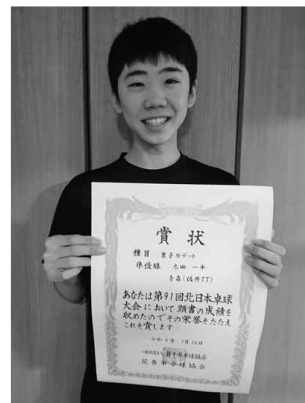 賞状
種目 男子カデット
準優勝 太田 一平
青森(佐井TT)
あなたは第91回北日本卓球
大会において頭書の成績を
収めたのでその栄誉をたたえ
これを賞します
令和
一般社団法人岩手県卓球協会
花巻市卓球協会